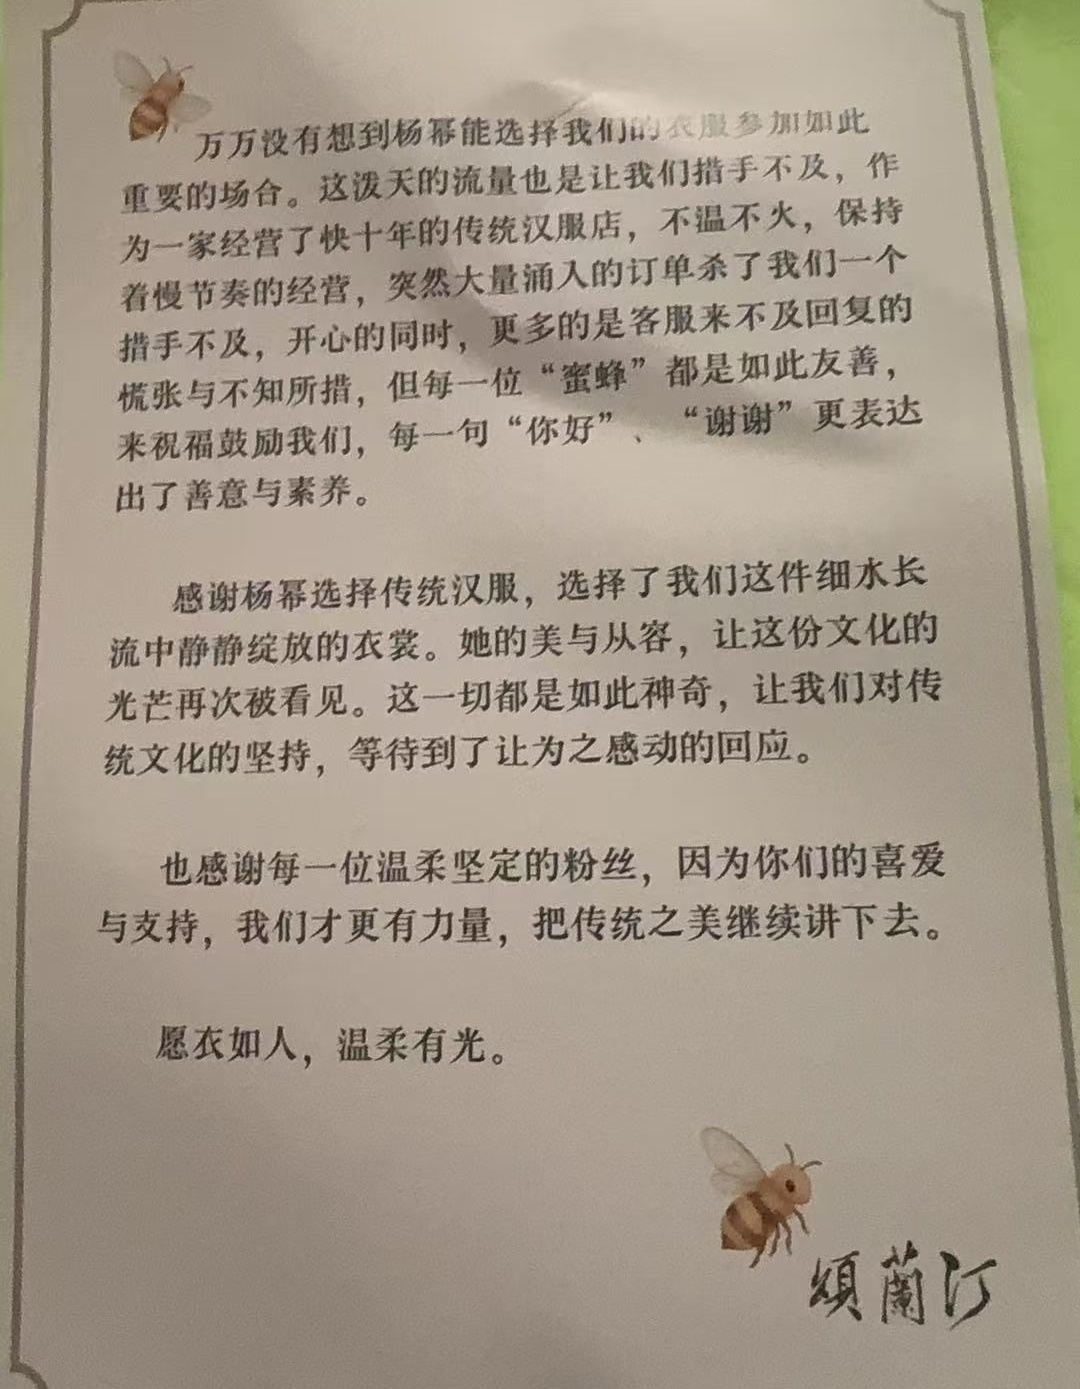 万万没有想到杨幂能选择我们的衣服参加如此
重要的场合。这泼天的流量也是让我们措手不及，作
为一家经营了快十年的传统汉服店，不温不火，保持
着慢节奏的经营，突然大量涌入的订单杀了我们一个
措手不及，开心的同时，更多的是客服来不及回复的
慌张与不知所措，但每一位“蜜蜂”都是如此友善，
来祝福鼓励我们，每一句“你好”、“谢谢”更表达
出了善意与素养。
感谢杨幂选择传统汉服，选择了我们这件细水长
流中静静绽放的衣裳。她的美与从容，让这份文化的
光芒再次被看见。这一切都是如此神奇，让我们对传
统文化的坚持，等待到了让为之感动的回应。
也感谢每一位温柔坚定的粉丝，因为你们的喜爱
与支持，我们才更有力量，把传统之美继续讲下去。
愿衣如人，温柔有光。
頌蘭汀